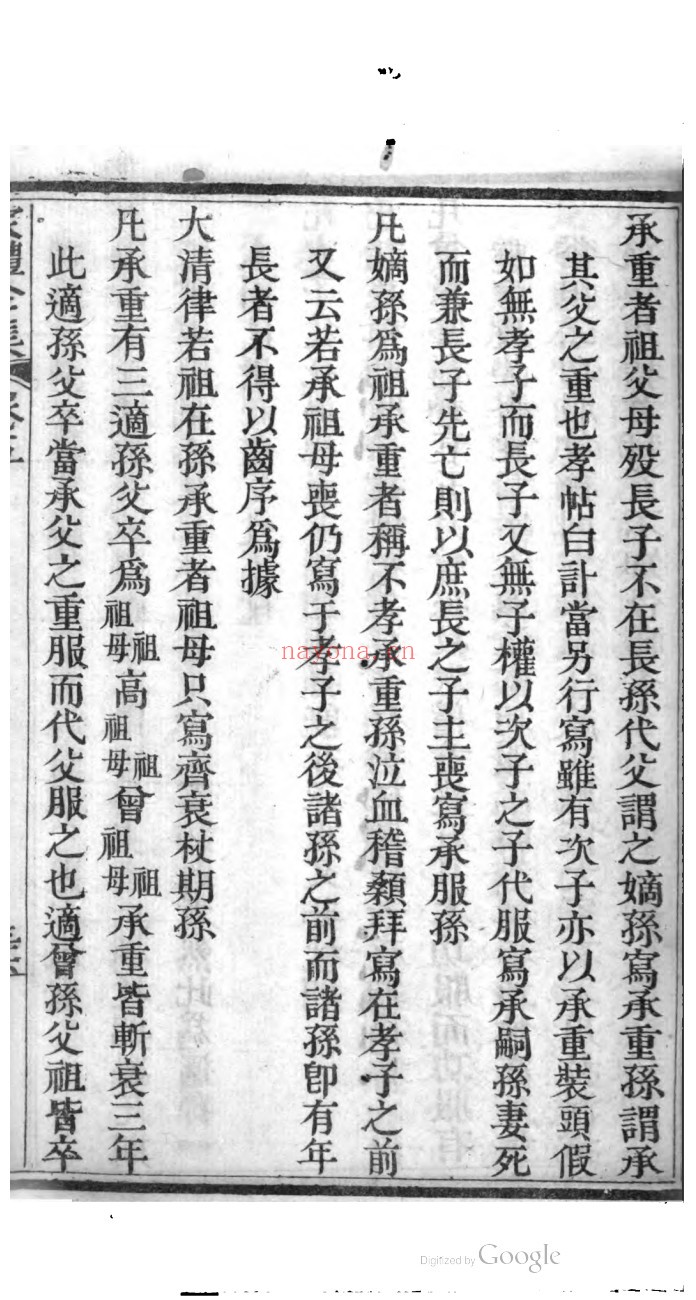 承重者祖父母歿長子不在長孫代父謂之嫡孫寫承重孫謂承
其父之重也孝帖白計當另行寫雖有次子亦以承重裝頭假
如無孝子而長子又無子權以次子之子代服寫承嗣孫妻死
而兼長子先亡則以庶長之子主喪寫承服孫
凡嫡孫爲祖承重者稱不孝承重孫泣血稽顙拜寫在孝子之前
又云若承祖母喪仍寫于孝子之後諸孫之前而諸孫卽有年
長者不得以齒序爲據
大清律若祖在孫承重者祖母只寫齊衰杖期孫
凡承重有三適孫父卒爲祖祖母高祖祖母曾祖祖母承重皆斬衰三年
此適孫父卒當承父之重服而代父服之也適曾孫父祖皆卒
nayona.cn
Digitized by Google